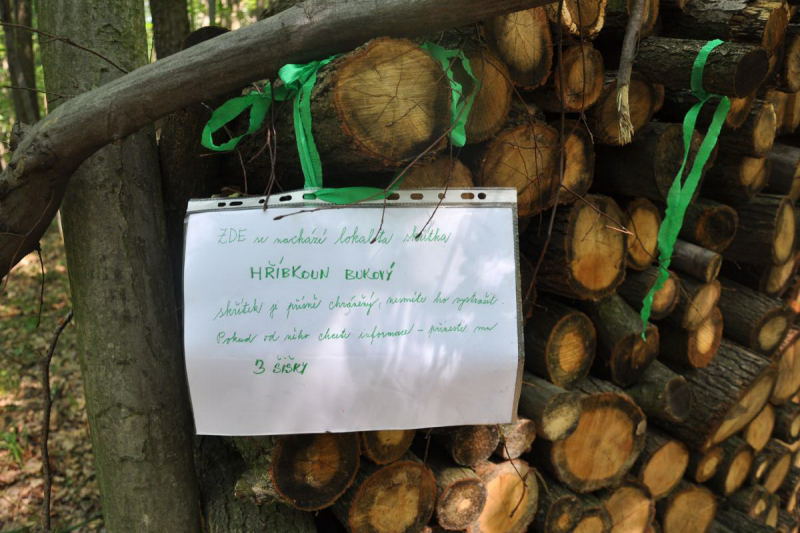 ZDE se nachází lokalita skřítka
HŘÍBKOUN BUKOVÝ
skřítek je přísně chráněný, nesmíte ho vystrašit.
Pokud od něho chcete informace - přineste mu
3 ŠIŠKY